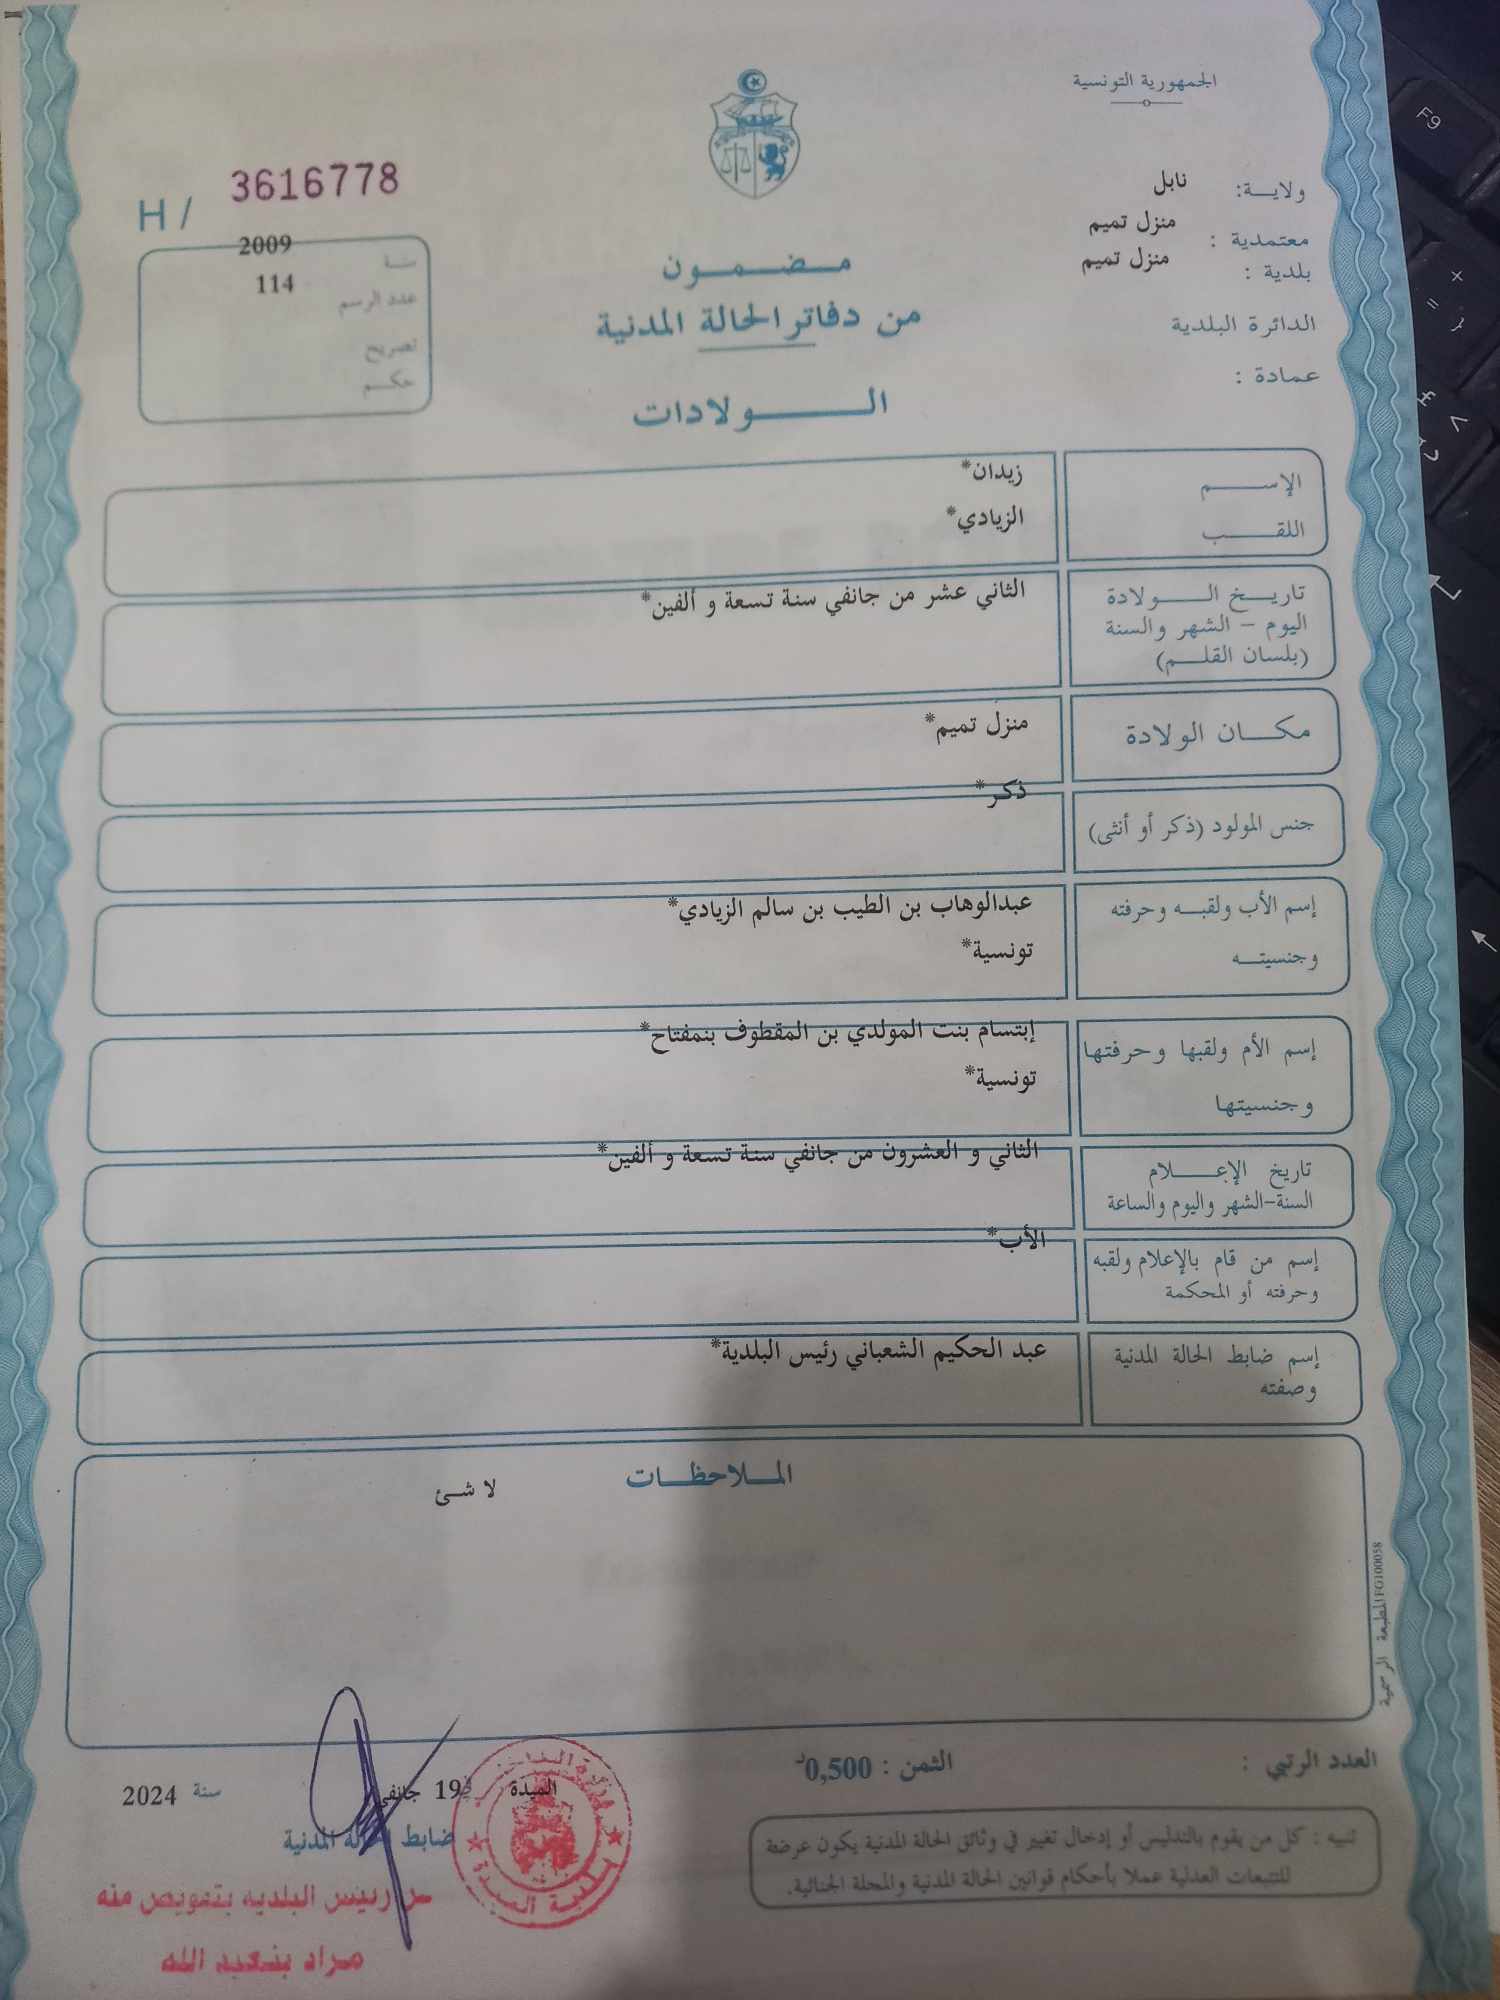 الجمهورية التونسية
ولايـــة: نابل
معتمدية : منزل تميم
بلدية : منزل تميم
الدائرة البلدية
عمادة :
H / 3616778
سنــة 2009
عدد الرسم 114
تصريح
حكــم
مـــضـــمـــون
من دفاتر الحالة المدنية
الـــــــولادات
الإســــــم زيدان*
اللقــــــب الزيادي*
تاريـــخ الـــــولادة الثاني عشر من جانفي سنة تسعة و ألفين*
اليوم – الشهر والسنة
(بلسان القلـــم)
مكـــان الولادة منزل تميم*
جنس المولود (ذكر أو أنثى) ذكر*
إسم الأب ولقبـــه وحرفته عبدالوهاب بن الطيب بن سالم الزيادي*
وجنسيتـــه تونسية*
إسم الأم ولقبها وحرفتها إبتسام بنت المولدي بن المقطوف بنمفتاح*
وجنسيتها تونسية*
تاريخ الإعـــــلام الثاني و العشرون من جانفي سنة تسعة و ألفين*
السنة-الشهر واليوم والساعة
إسم من قام بالإعلام ولقبه الأب*
وحرفته أو المحكمة
إسم ضابط الحالة المدنية عبد الحكيم الشعباني رئيس البلدية*
وصفته
المـــلاحظـــات
لا شئ
المطبعة الرسمية FG100058
العدد الرتبي :
الثمن : 0,500د
تنبيه : كل من يقوم بالتدليس أو إدخال تغيير في وثائق الحالة المدنية يكون عرضة
للتتبعات العدلية عملا بأحكام قوانين الحالة المدنية والمجلة الجنائية.
الميدة في 19 جانفي سنة 2024
ضابط الحالة المدنية
عن رئيس البلدية بتفويض منه
مراد بنعبد الله
بلدية الميدة
F9